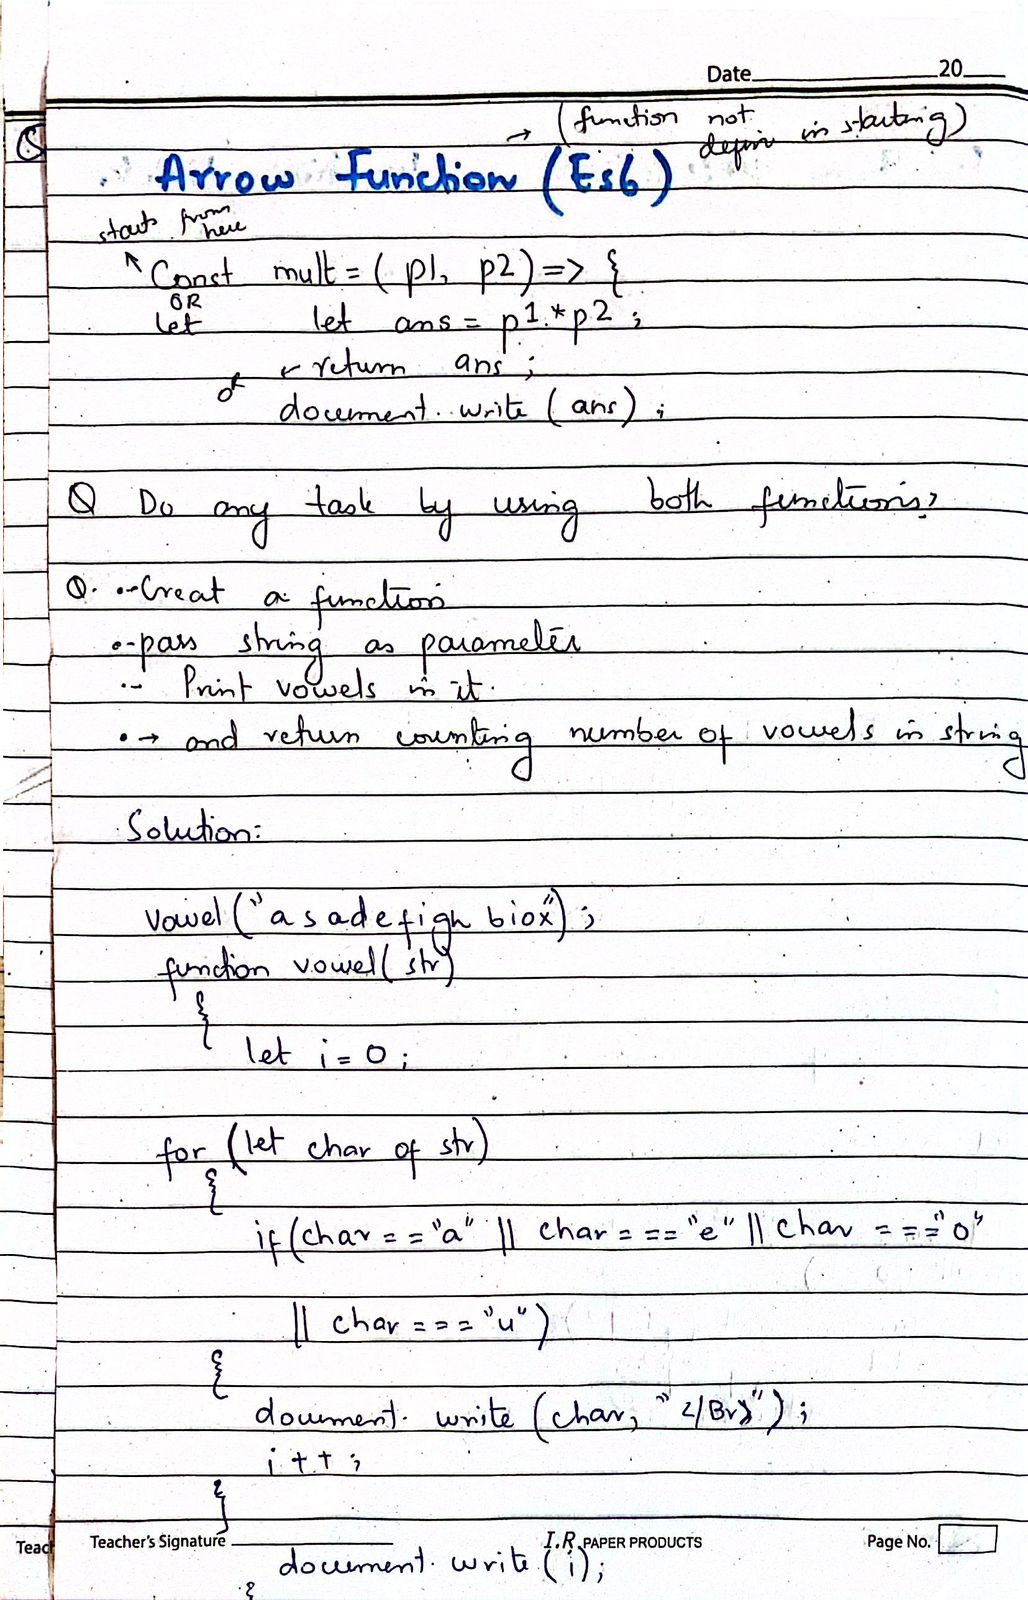 Date 20
→ (function not define in starting)
Arrow Function (Es6)
starts from here
Const mult = ( p1, p2) => {
OR
let let ans = p1 * p2 ;
← return ans ;
or
document. write ( ans) ;
Q Do any task by using both functions?
Q. Creat a function
pass string as parameter
Print vowels in it.
→ and return counting number of vowels in string
Solution:
vowel ("a s a d e f i g h b i o x") ;
function vowel( str)
{
let i = 0 ;
for (let char of str)
{
if (char = = "a" || char = = = "e" || char = = = "o"
|| char = = = "u" )
{
document. write (char, "</Br>") ;
i + + ;
}
Teacher's Signature I.R. PAPER PRODUCTS Page No.
Teac
document. write ( i);